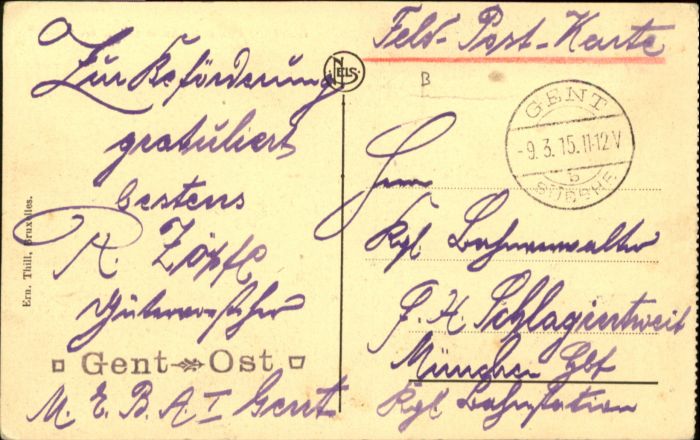 Feld-Post-Karte
Zur Beförderung
gratuliert
bestens
R. Zöpfl
Gütervorsteher
Gent Ost
M. E. B. A. I Gent
NELS
B
GENT
-9.3.15.11-12V
b
Ern. Thill, Bruxelles.
Herrn
Kgl. Bahnverwalter
F. H. Schlagintweit
München Hbf
Kgl. Bahnstation